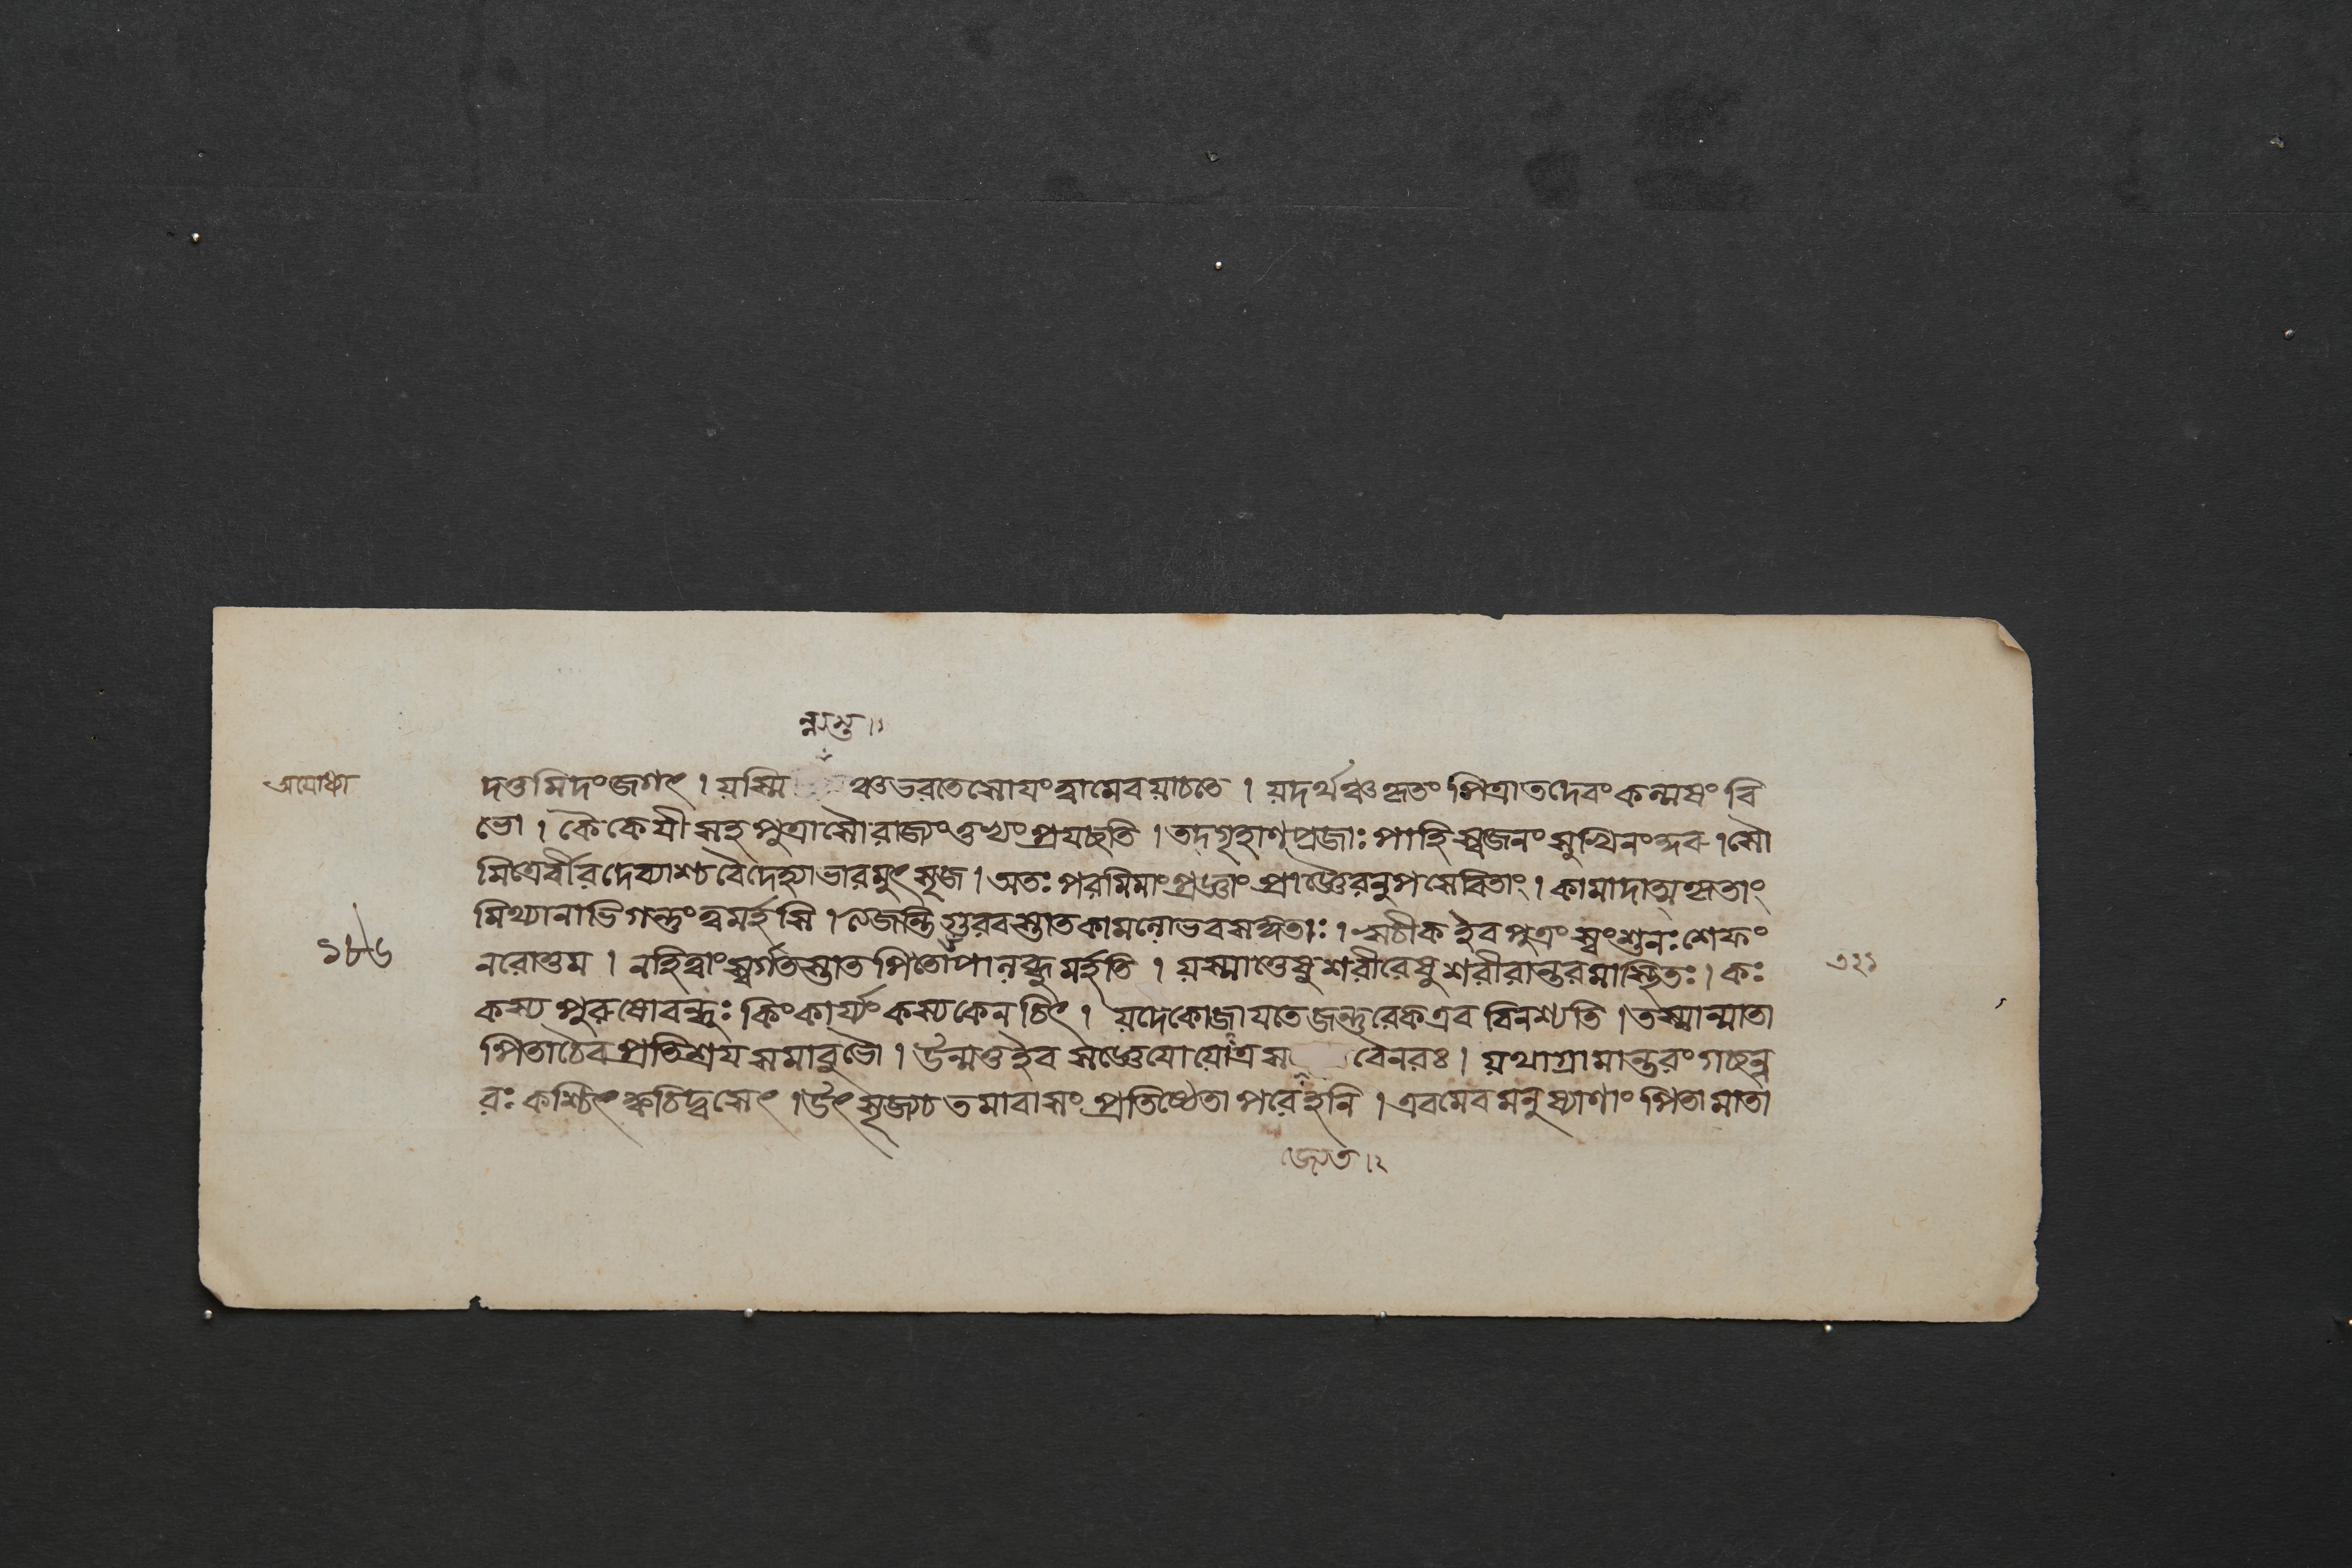 ন্নস্তু ।১
অযোধ্যা
দত্তমিদংজগৎ । য়স্মি ঞ্চভরতেসোযংত্বামেবয়াচতে । য়দর্থঞ্চকৃতং পিত্রাতদেবংকল্মষং বি
ভো । কৈকেযী সহ পুত্রাসৌরাজ্যংতুখ্যংপ্রযচ্ছতি । তদ্গৃহাণপ্রজাঃ পাহি স্বজনংসুখিনংকুরু । সৌ
মিত্রের্বীরদেব্যাশ্চবৈদেহ্যাভারমুৎসৃজ । অতঃ পরমিমাংপ্রজ্ঞাং প্রাজ্ঞৈরনুপসেবিতাং । কামাদাত্মকৃতাং
মিথ্যানাভিগন্তুংত্বমর্হসি । ত্যজন্তি গুরবস্তাতকামমন্যোভবসঙ্গিতাঃ । ঋচীক ইব পুত্রং স্বং শুনঃশেফং
১৮৬
নরোত্তম । নহিত্বাংস্বর্গতস্তাত পিতোপানদ্ধুমর্হতি । য়স্মাত্তেষুশরীরেষুশরীরান্তরমাস্থিতঃ । কঃ
৩২১
কস্য পুরুষোবন্ধুঃ কিংকার্য্যং কস্যকেনচিৎ । য়দেকোজাযতেজন্তুরেকএব বিনশ্যতি । তস্মান্মাতা
পিতাচৈব প্রতিশ্রয সমাবুভৌ । উন্মত্তইব সজ্ঞেযোয়োত্রস বৈনরঃ । য়থাগ্রামান্তরংগচ্ছন্ন
রঃ কশ্চিৎ ক্বচিদ্বসেৎ । উৎসৃজ্যচ তমাবাসং প্রতিষ্ঠেতাপরেহনি । এবমেবমনুষ্যাণাং পিতামাতা
জ্জেত ।২